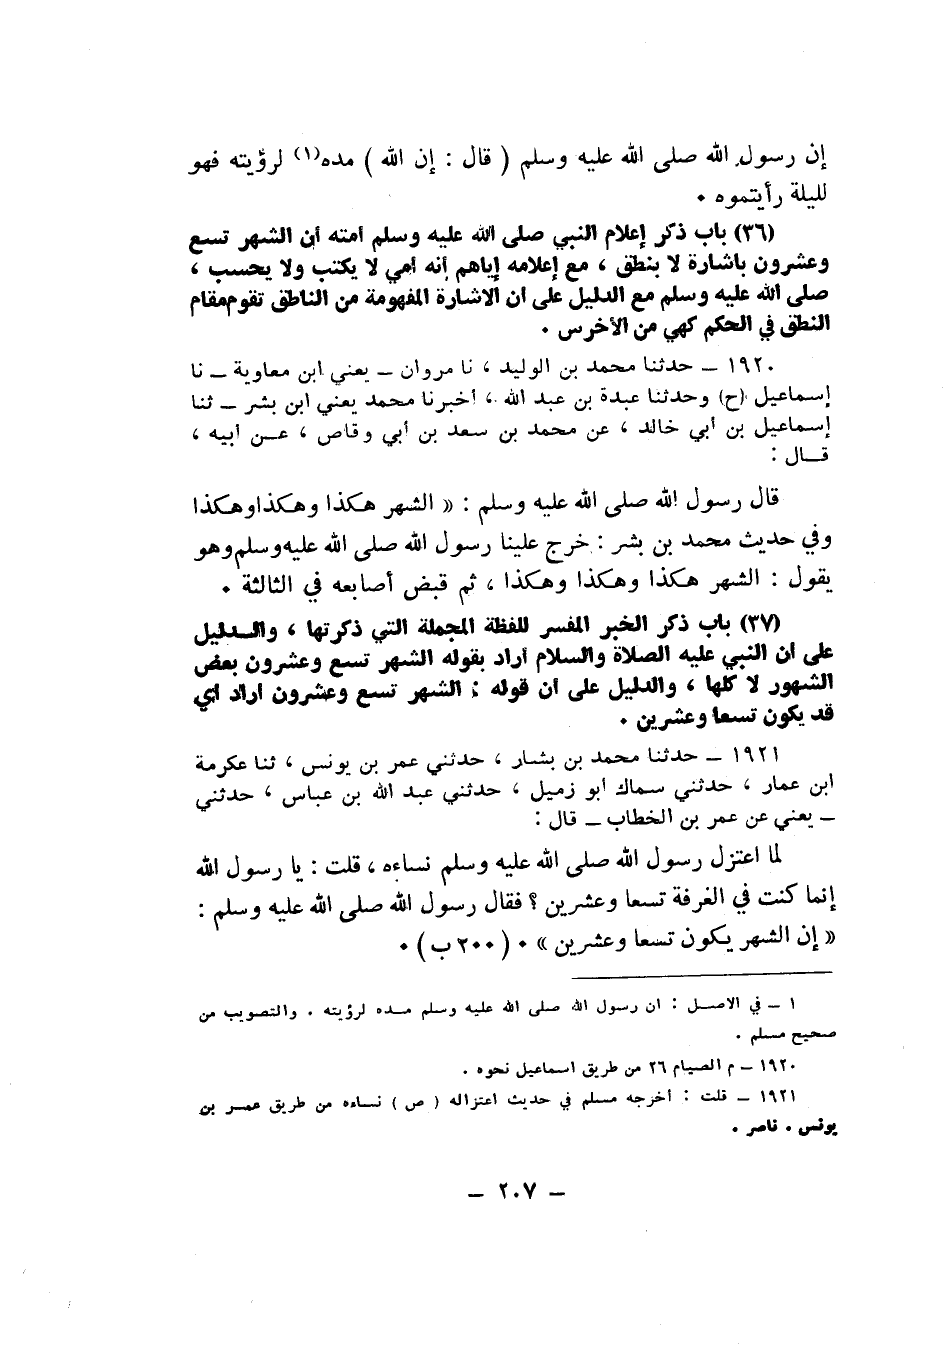 إن رسول الله صلى الله عليه وسلم ( قال : إن الله ) مده(١) لرؤيته فهو
لليلة رأيتموه ٠
(٣٦) باب ذكر إعلام النبي صلى الله عليه وسلم أمته أن الشهر تسع
وعشرون باشارة لا بنطق ، مع إعلامه إياهم أنه أمي لا يكتب ولا يحسب ،
صلى الله عليه وسلم مع الدليل على أن الاشارة المفهومة من الناطق تقوم مقام
النطق في الحكم كهي من الأخرس ٠
١٩٢٠ ــ حدثنا محمد بن الوليد ، نا مروان ــ يعني ابن معاوية ــ نا
إسماعيل (ح) وحدثنا عبدة بن عبد الله ، أخبرنا محمد يعني ابن بشر ــ ثنا
إسماعيل بن أبي خالد ، عن محمد بن سعد بن أبي وقاص ، عن أبيه ،
قال :
قال رسول الله صلى الله عليه وسلم : « الشهر هكذا وهكذا وهكذا
وفي حديث محمد بن بشر : خرج علينا رسول الله صلى الله عليه وسلم وهو
يقول : الشهر هكذا وهكذا وهكذا ، ثم قبض أصابعه في الثالثة ٠
(٣٧) باب ذكر الخبر المفسر للفظة المجملة التي ذكرتها ، والدليل
على أن النبي عليه الصلاة والسلام أراد بقوله الشهر تسع وعشرون بعض
الشهور لا كلها ، والدليل على أن قوله : الشهر تسع وعشرون أراد أي
قد يكون تسعا وعشرين ٠
١٩٢١ ــ حدثنا محمد بن بشار ، حدثني عمر بن يونس ، ثنا عكرمة
ابن عمار ، حدثني سماك أبو زميل ، حدثني عبد الله بن عباس ، حدثني
ــ يعني عن عمر بن الخطاب ــ قال :
لما اعتزل رسول الله صلى الله عليه وسلم نساءه ، قلت : يا رسول الله
إنما كنت في الغرفة تسعا وعشرين ؟ فقال رسول الله صلى الله عليه وسلم :
« إن الشهر يكون تسعا وعشرين » ٠ ( ٢٠٠ ب ) ٠
١ ــ في الاصل : ان رسول الله صلى الله عليه وسلم مده لرؤيته . والتصويب من
صحيح مسلم .
١٩٢٠ ــ م الصيام ٢٦ من طريق اسماعيل نحوه .
١٩٢١ ــ قلت : أخرجه مسلم في حديث اعتزاله ( ص ) نساءه من طريق عمر بن
يونس . ناصر .
ــ ٢٠٧ ــ